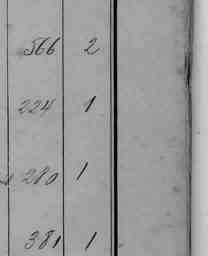 566 2
224 1
280 1
381 1